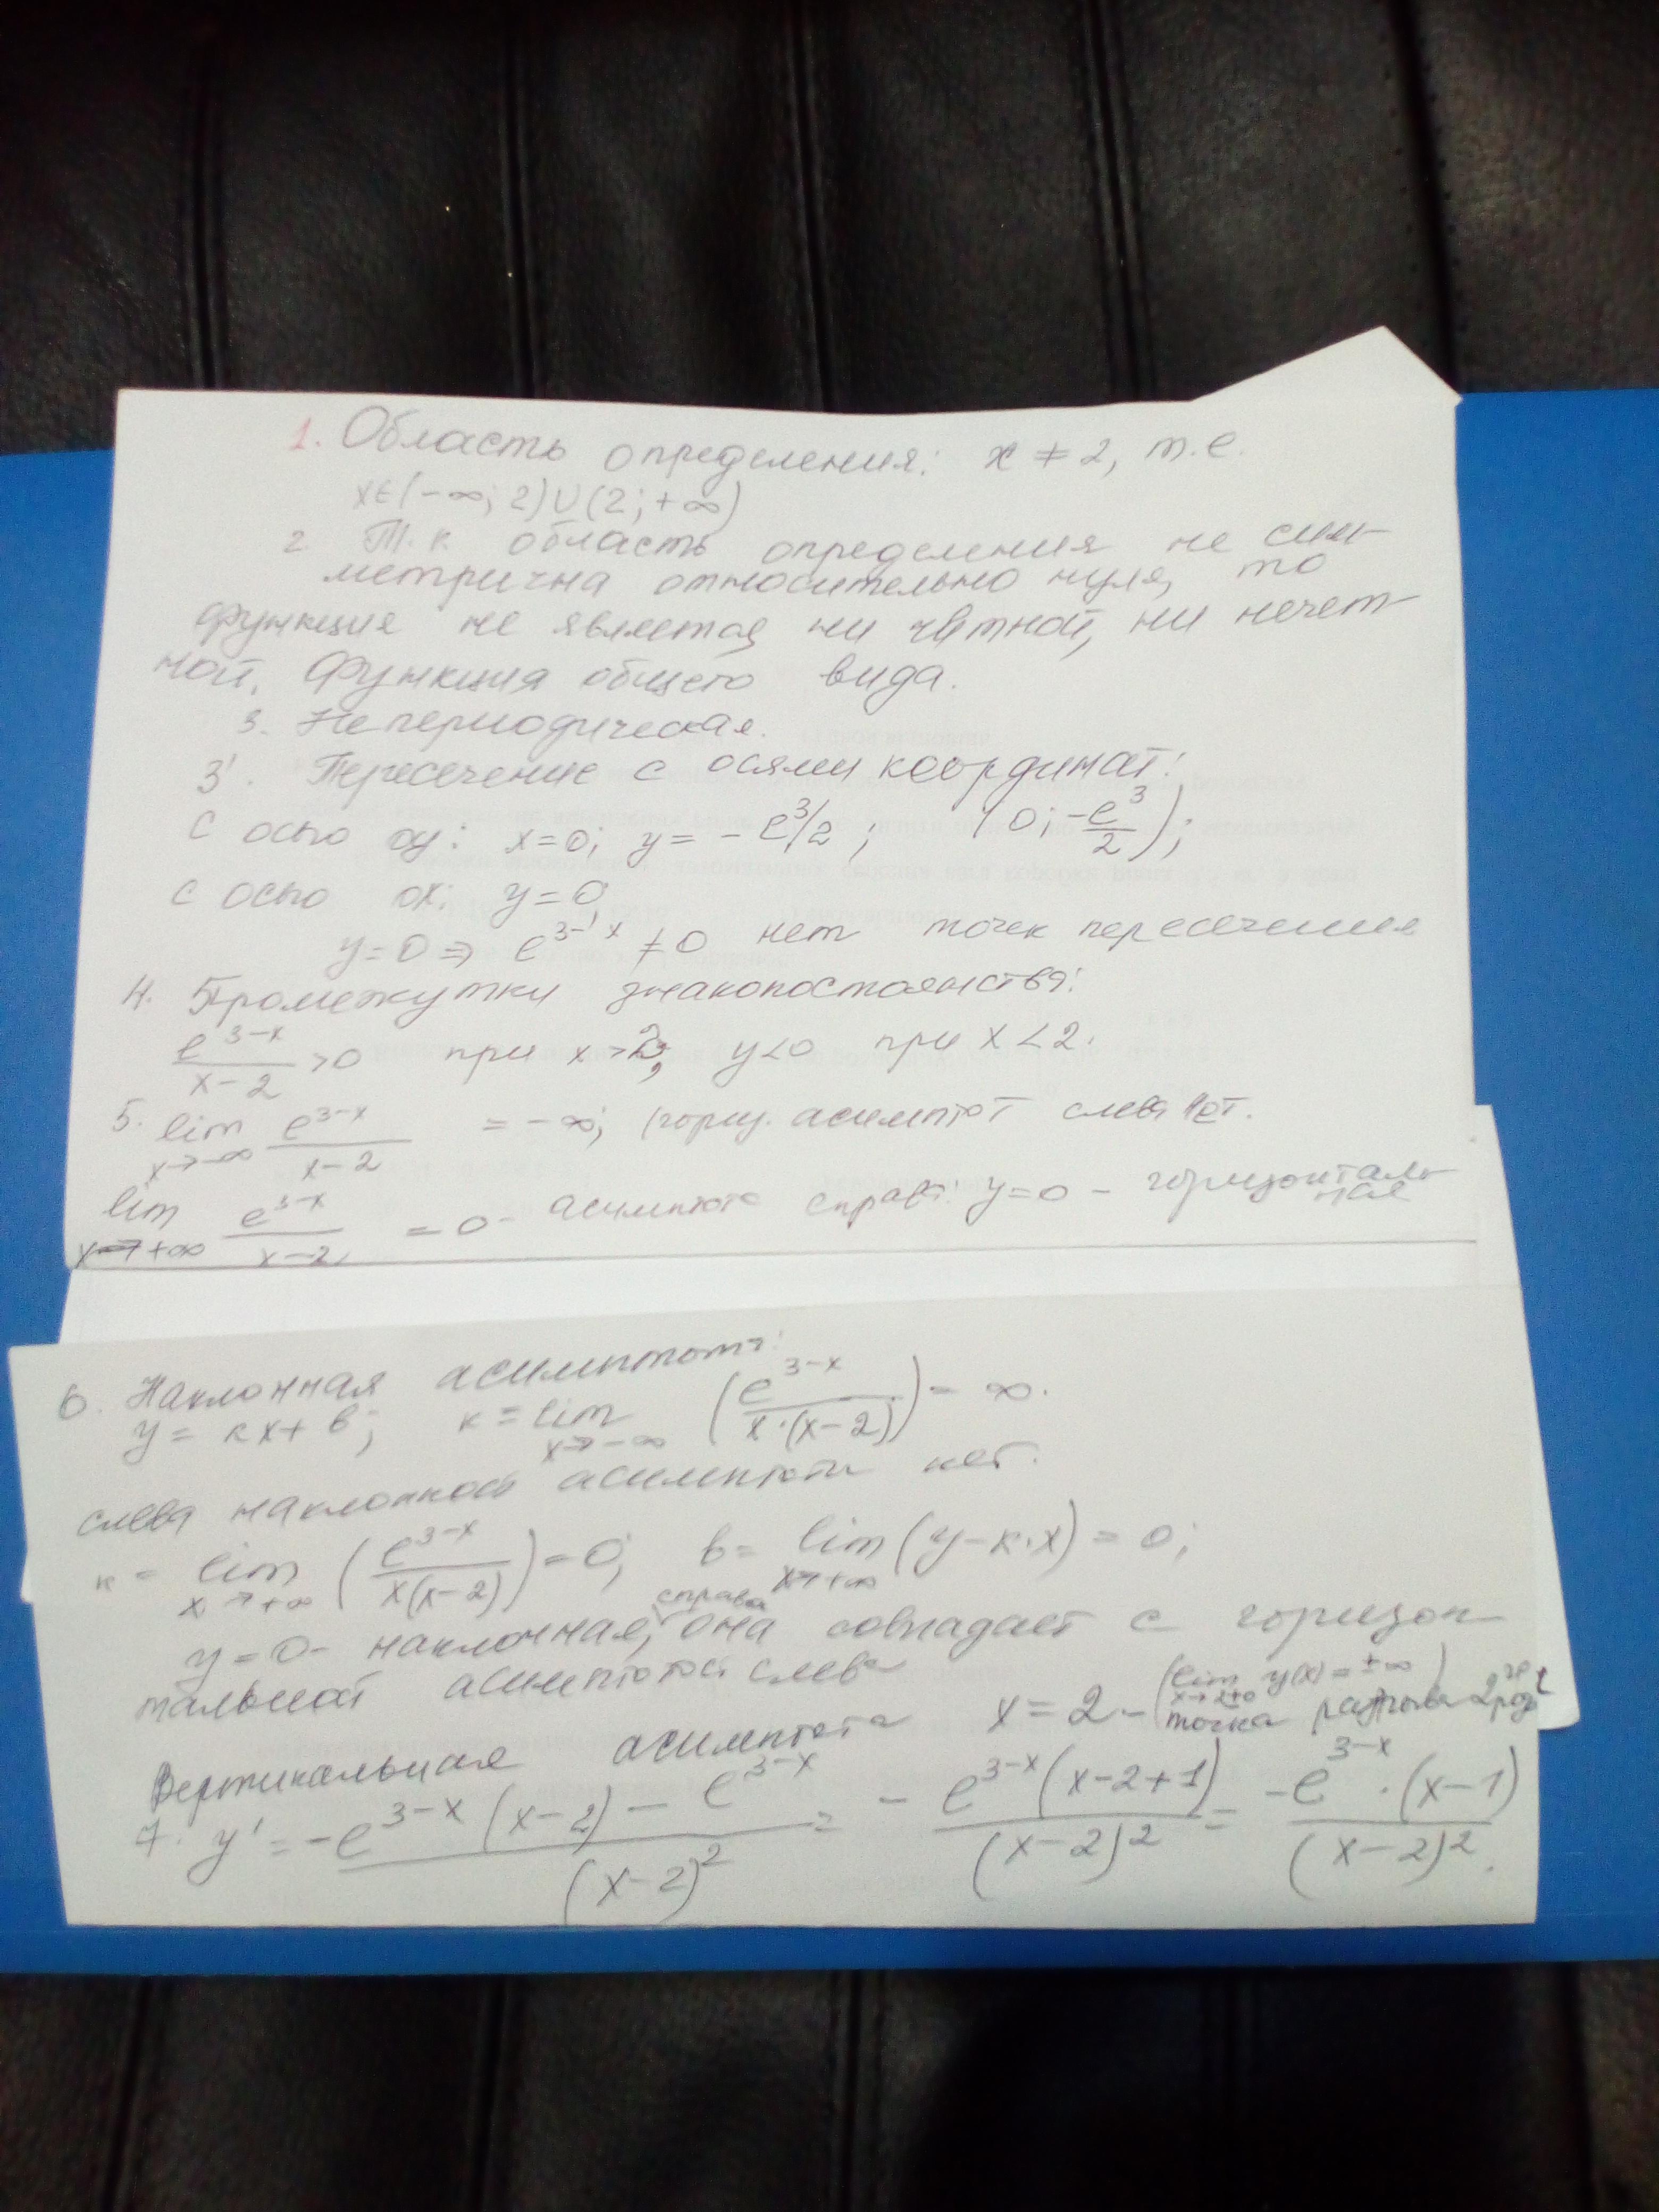 1. Область определения: x ≠ 2, т.е.
x∈(-∞; 2)∪(2; +∞)
2. Т.к. область определения не сим-
метрична относительно нуля, то
функция не является ни четной, ни нечет-
ной. Функция общего вида.
3. Непериодическая.
3'. Пересечение с осями координат:
с осью oy: x=0; y= -e^3/2 ; (0; -e^3/2);
с осью ox: y=0;
y=0 ⇒ e^{3-x} ≠ 0 нет точек пересечения
4. Промежутки знакопостоянства:
e^{3-x}/(x-2) >0 при x>2; y<0 при x<2.
5. lim x→-∞ e^{3-x}/(x-2) = -∞; (гориз. асимптот слева нет.
lim x→+∞ e^{3-x}/(x-2) = 0 - асимптота справа: y=0 - горизонталь-
ная
6. Наклонная асимптота:
y = kx + b; k = lim x→-∞ (e^{3-x}/(x·(x-2))) = ∞.
слева наклонной асимптоты нет.
k = lim x→+∞ (e^{3-x}/(x(x-2))) = 0; b = lim x→+∞ (y-k·x) = 0;
справа
y=0 - наклонная, она совпадает с горизон-
тальной асимптотой слева
(lim x→2±0 y(x) = ±∞)
Вертикальная асимптота x = 2 - точка разрыва 2го рода
7. y' = (-e^{3-x}(x-2) - e^{3-x})/(x-2)^2 = - e^{3-x}(x-2+1)/(x-2)^2 = -e^{3-x}·(x-1)/(x-2)^2.